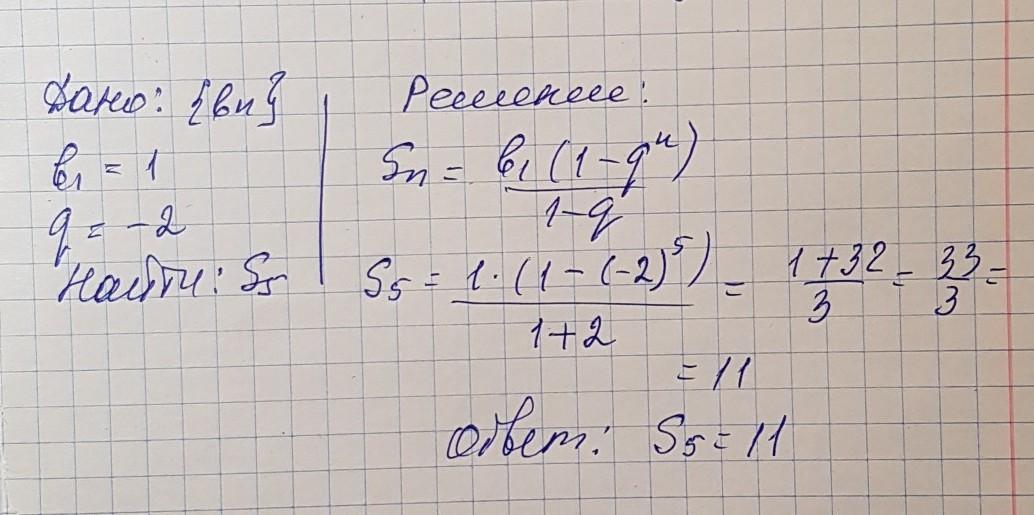 Дано: {bn}
b1 = 1
q = -2
Найти: S5
Решение:
Sn = b1 (1-q^n) / 1-q
S5 = 1·(1-(-2)^5) / 1+2 = 1+32 / 3 = 33 / 3 =
= 11
Ответ: S5 = 11